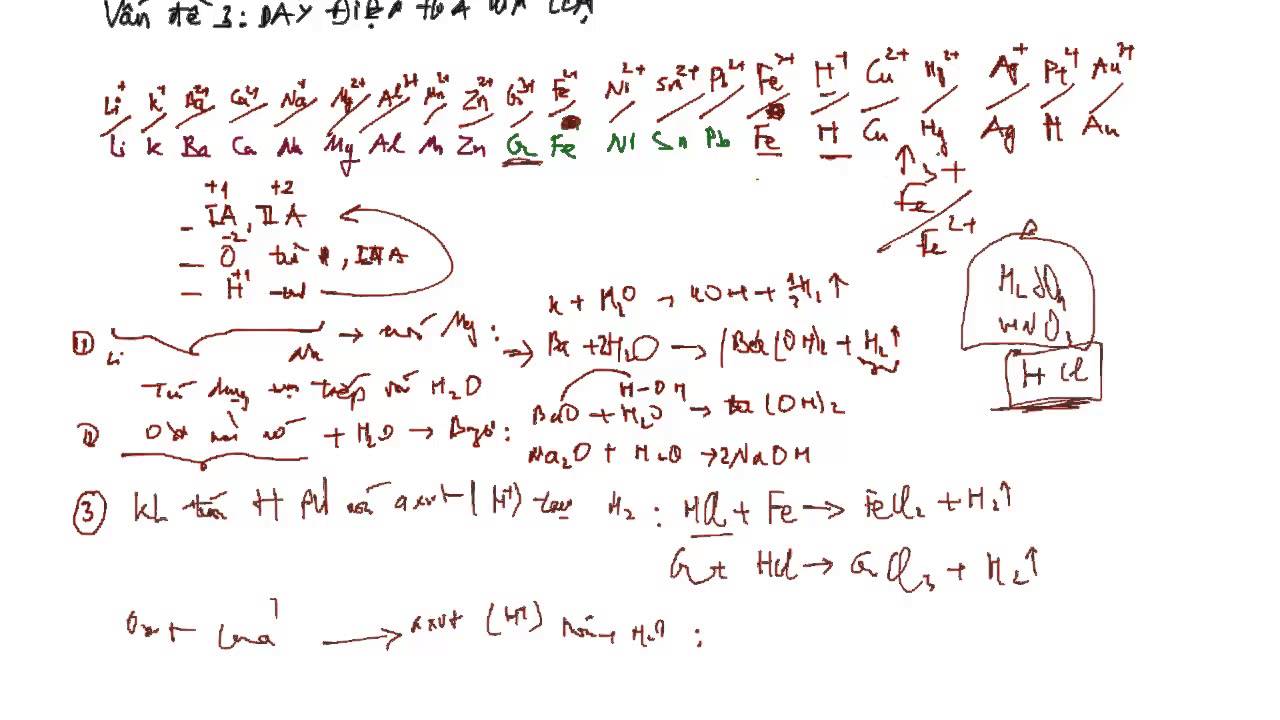 Vấn đề 3: DÃY ĐIỆN HÓA
Li⁺ K⁺ Ba²⁺ Ca²⁺ Na⁺ Mg²⁺ Al³⁺ Mn²⁺ Zn²⁺ Cr³⁺ Fe²⁺ Ni²⁺ Sn²⁺ Pb²⁺ Fe³⁺ H⁺ Cu²⁺ Hg²⁺ Ag⁺ Pt²⁺ Au³⁺
Li K Ba Ca Na Mg Al Mn Zn Cr Fe Ni Sn Pb Fe H Cu Hg Ag Au
Fe³⁺
Fe²⁺
+1 +2
- IA, IIA
-2
- O
+1
- H
H₂SO₄
HNO₃
HCl
K + H₂O → KOH + ½H₂↑
① Li Na → Mg: ⇒ Ba + 2H₂O → Ba(OH)₂ + H₂↑
Tác dụng trực tiếp với H₂O
H-OH
+ H₂O → Bazơ: BaO + H₂O → Ba(OH)₂
Na₂O + H₂O → 2NaOH
③ KL trước H PƯ với axit (H⁺) tạo H₂: HCl + Fe → FeCl₂ + H₂↑
Cr + HCl → CrCl₃ + H₂↑
axit (H⁺) :